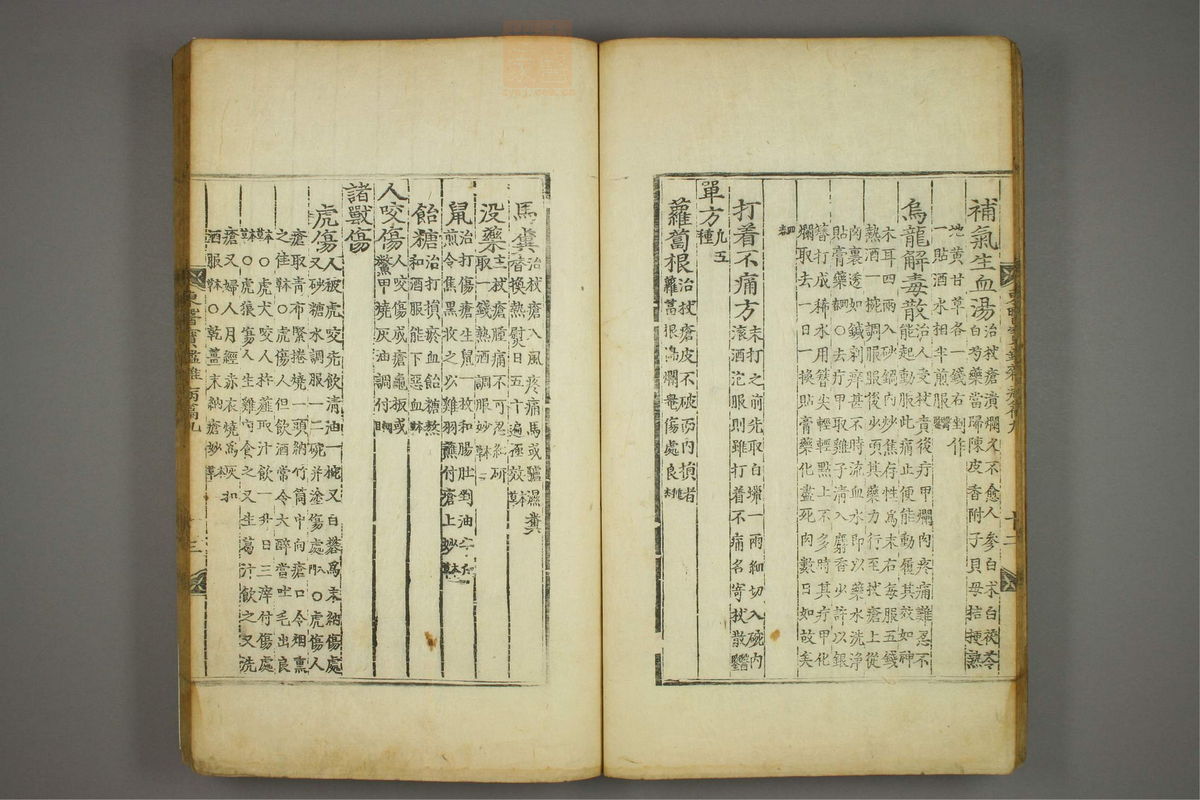 補氣生血湯治杖瘡潰爛久不愈人參白朮白茯苓
白芍藥當歸陳皮香附子貝母桔梗熟
地黃甘草各一錢右剉作
一貼酒水相半煎服
烏龍解毒散治人受杖責後疔甲爛肉疼痛難忍不
能起動服此痛止便能動履其效如神
木耳四兩入砂鍋內炒焦存性爲末右每服五錢
熱酒一椀調服服後少頃其藥力行至杖瘡上從
肉裏透如鍼刺痒甚不時流血水即以藥水洗淨
貼膏藥○去疔甲取雞子淸入麝香少許以銀
簪打成稀水用簪尖輕輕點上不多時其疔甲化
爛取去一日一換貼膏藥化盡死肉數日如故矣
打着不痛方未打之前先取白蠟一兩細切入碗內
滾酒泡服則雖打着不痛名寄杖散
單方凡五種
蘿葍根治杖瘡皮不破而內損者
蘿葍根擣爛罨傷處良
馬糞治杖瘡入風疼痛馬或驢濕糞
替換熱熨日五十遍極效
沒藥主杖瘡腫痛不可忍細研
取一錢熱酒調服妙
鼠治打傷瘡生鼠一枚和腸肚剉油半斤
煎令焦黑收之以雞羽蘸付瘡上妙
飴糖治打損瘀血飴糖熬
和酒服能下惡血
人咬傷人咬傷成瘡龜板或
鱉甲燒灰油調付
諸獸傷
虎傷人被虎咬先飮淸油一椀又白礬爲末納傷處
又砂糖水調服一二碗并塗傷處○虎傷人
瘡取靑布緊捲燒一頭納竹筒中向瘡口令烟熏
之佳○虎傷人但飮酒常令大醉當吐毛出良
○虎犬咬人杵薤取汁飮一升日三滓付傷處
○虎狼傷人生雞肉食之又生葛汁飮之又洗
瘡又婦人月經赤衣燒爲灰和
酒服○乾薑末納瘡妙